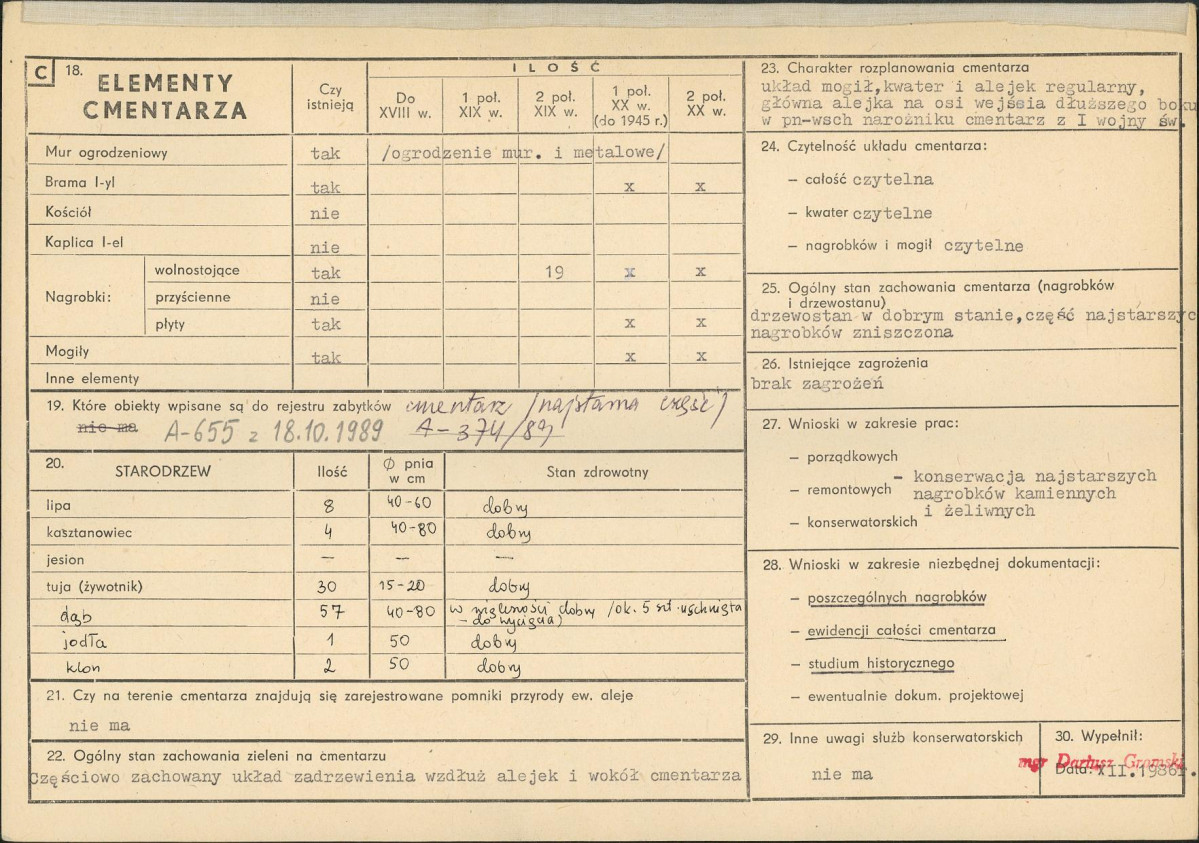 C 18. ELEMENTY
CMENTARZA
Czy
istnieją
ILOŚĆ
Do
XVIII w.
1 poł.
XIX w.
2 poł.
XIX w.
1 poł.
XX w.
(do 1945 r.)
2 poł.
XX w.
Mur ogrodzeniowy tak /ogrodzenie mur. i metalowe/
Brama I-yl tak x x
Kościół nie
Kaplica I-el nie
Nagrobki: wolnostojące tak 19 x x
przyścienne nie
płyty tak x x
Mogiły tak x x
Inne elementy
19. Które obiekty wpisane są do rejestru zabytków cmentarz /najstarsza część/
nie ma A-655 z 18.10.1989 A-374/89
20. STARODRZEW Ilość Ø pnia
w cm Stan zdrowotny
lipa 8 40-60 dobry
kasztanowiec 4 40-80 dobry
jesion — — —
tuja (żywotnik) 30 15-20 dobry
dąb 57 40-80 w większości dobry /ok. 5 szt. uschnięta
- do wycięcia)
jodła 1 50 dobry
klon 2 50 dobry
21. Czy na terenie cmentarza znajdują się zarejestrowane pomniki przyrody ew. aleje
nie ma
22. Ogólny stan zachowania zieleni na cmentarzu
Częściowo zachowany układ zadrzewienia wzdłuż alejek i wokół cmentarza
23. Charakter rozplanowania cmentarza
układ mogił,kwater i alejek regularny,
główna alejka na osi wejśsia dłuższego boku
w pn-wsch narożniku cmentarz z I wojny św.
24. Czytelność układu cmentarza:
— całość czytelna
— kwater czytelne
— nagrobków i mogił czytelne
25. Ogólny stan zachowania cmentarza (nagrobków
i drzewostanu)
drzewostan w dobrym stanie,część najstarszyc
nagrobków zniszczona
26. Istniejące zagrożenia
brak zagrożeń
27. Wnioski w zakresie prac:
— porządkowych
— remontowych
— konserwatorskich
- konserwacja najstarszych
nagrobków kamiennych
i żeliwnych
28. Wnioski w zakresie niezbędnej dokumentacji:
— poszczególnych nagrobków
— ewidencji całości cmentarza
— studium historycznego
— ewentualnie dokum. projektowej
29. Inne uwagi służb konserwatorskich
nie ma
30. Wypełnił:
mgr Dariusz Gromski
Data: XII.1986r.